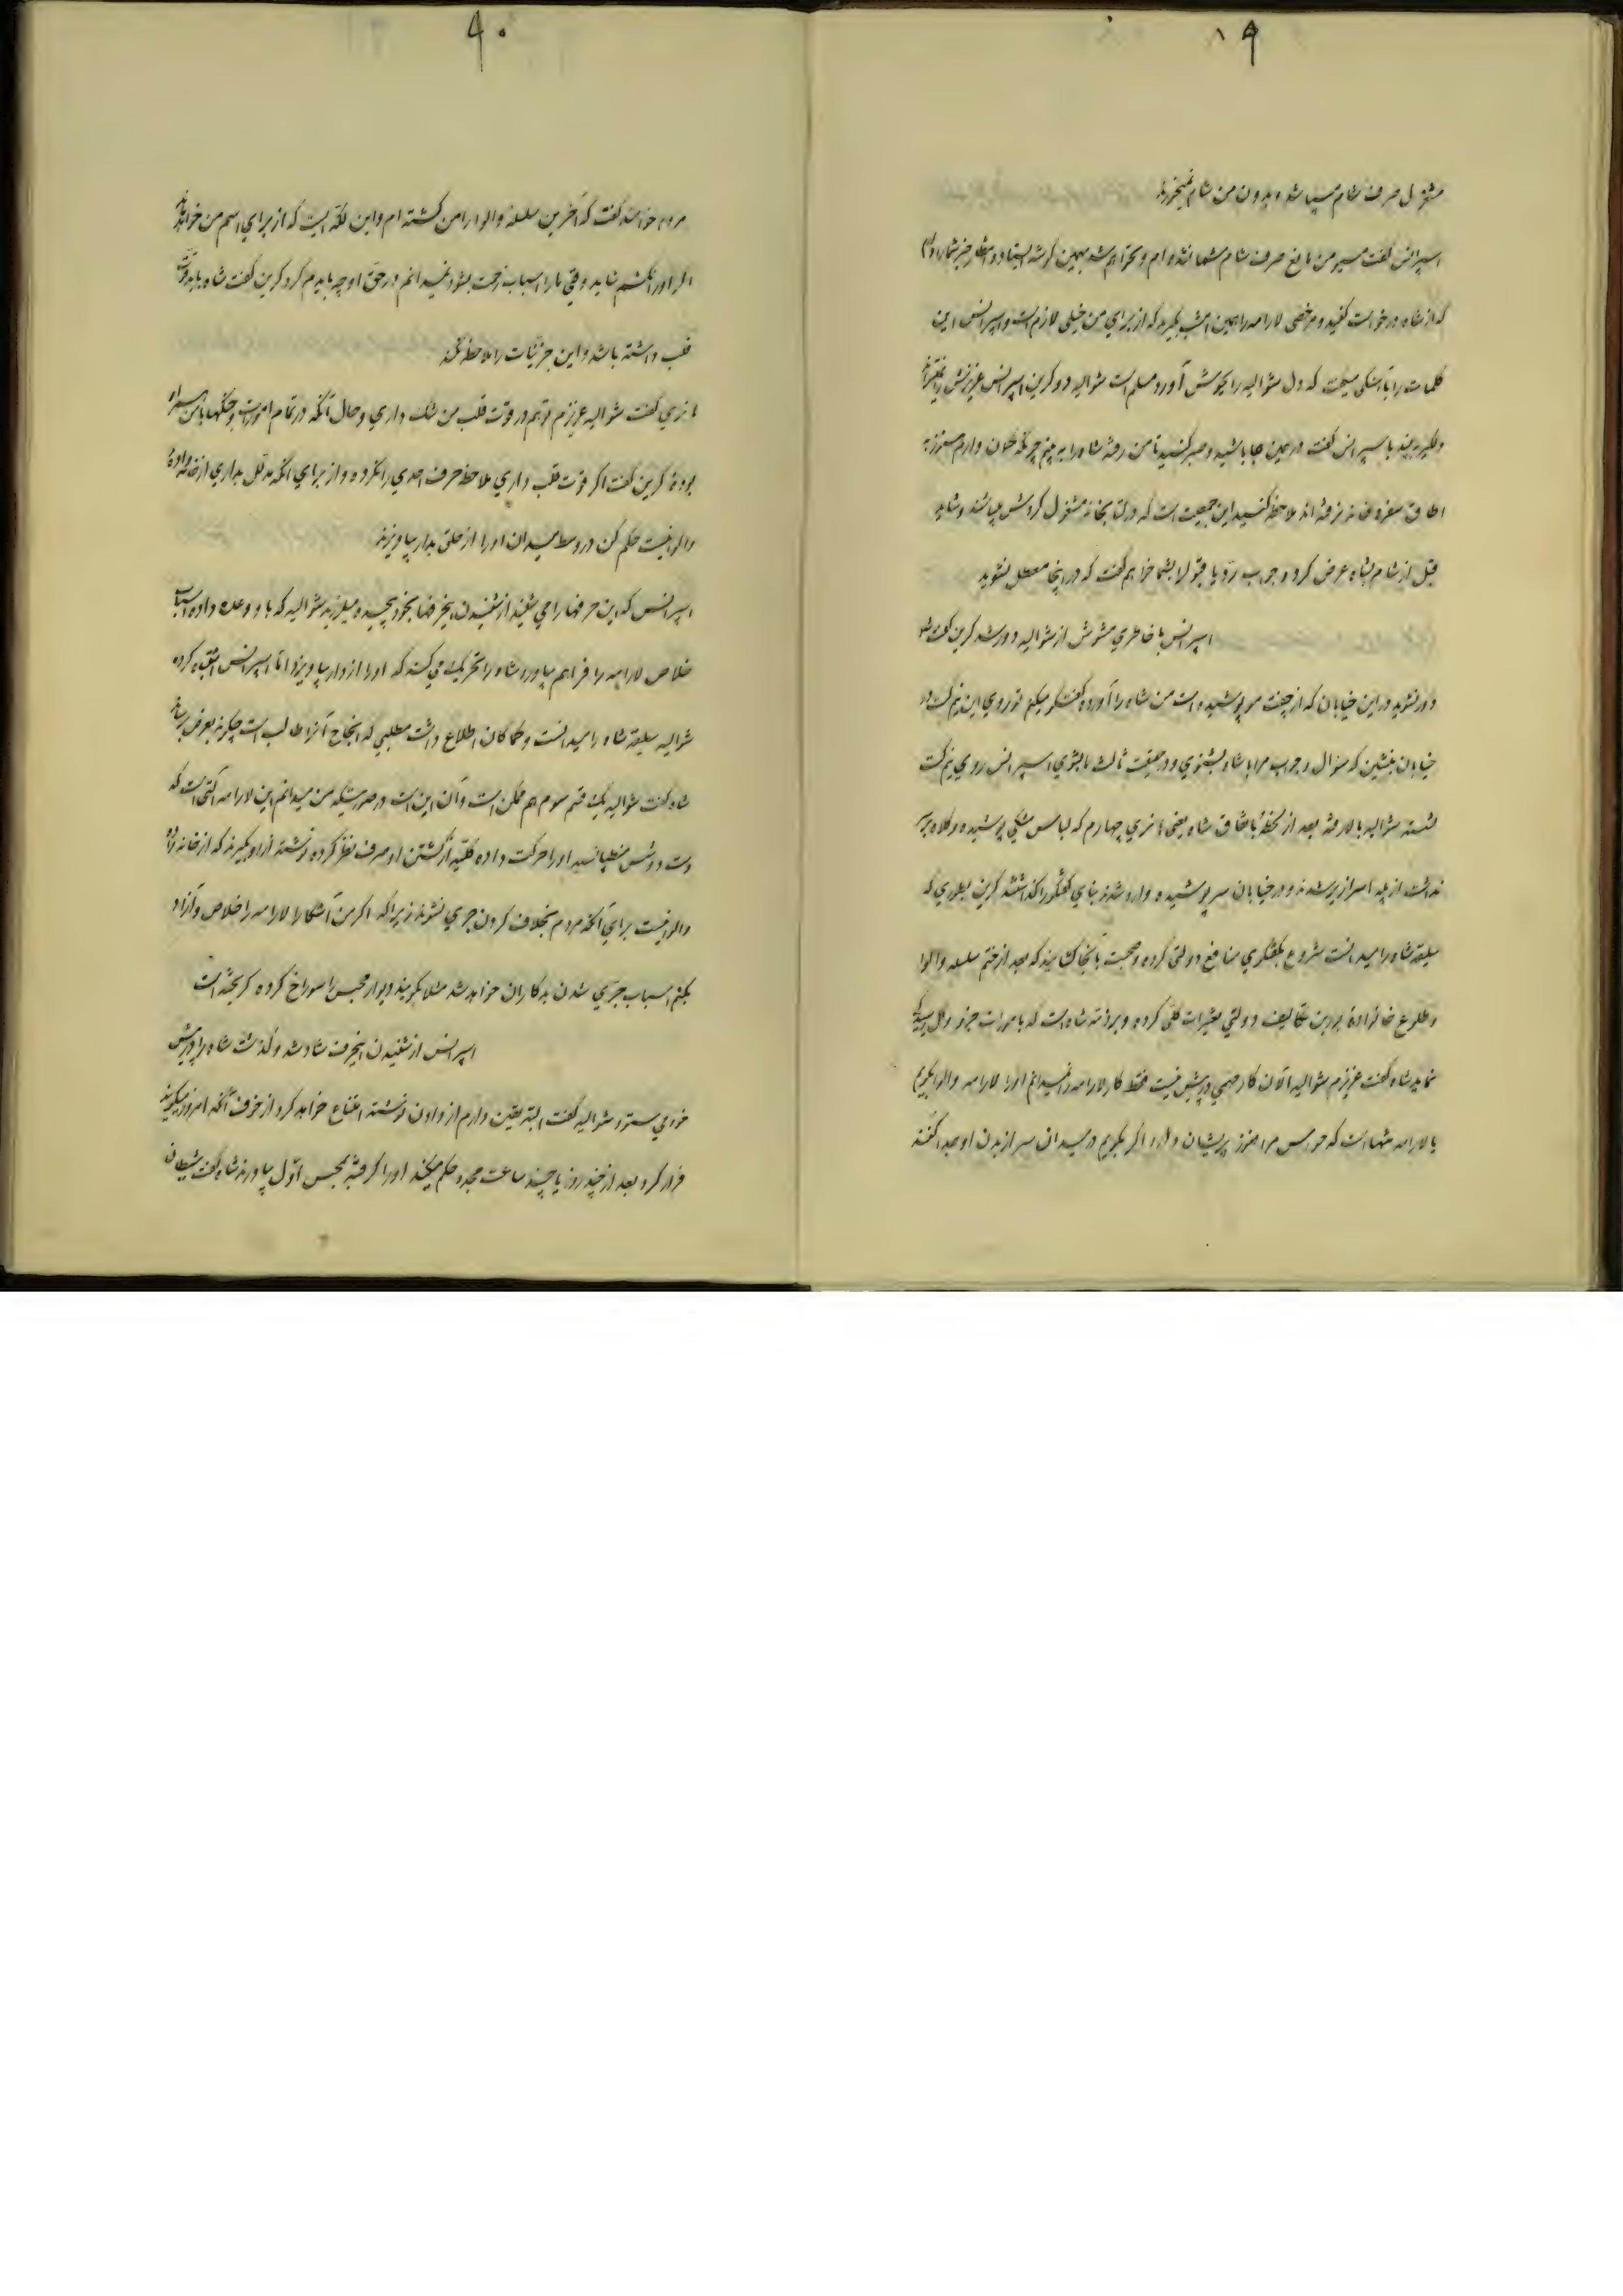 ۸۹
مشغول صرف شام میباشد و بدون من شام نمیخورد
اسپرانس گفت مسیو من مانع صرف شام شما نشده ام و نخواهم شد بهمین گوشه ایستاده و منتظر خبر شما را دارم
که از شاه درخواست کنید و مرخصی لارامه را همین امشب بگیرید که از برای من خیلی لازم است و اسپرانس این
کلمات را بآهنگی میگفت که دل شوالیه را بجوش آورد مسلم است شوالیه دو کرین اسپرانس عزیزش را نمیتواند
دلگیر ببیند باسپرانس گفت در همین جا باشید و صبر کنید تا من رفته شاه را به بینم چونکه الان دارم هنوز به
اطاق سفره خانه نرفته اند ملاحظه کنید این جمعیت است که در کتابخانه مشغول گردش میباشند و شاید
قبل از شام بشاه عرض کرده جواب رد یا قبول را بشما خواهم گفت که در اینجا معطل نشوید
اسپرانس با خاطری مشوش از شوالیه دور شد کرین گفت
دور نشوید در این خیابان که از چفت مو پوشیده است من شاه را آورده گفتگو میکنم تو روی این نیم کت در
خیابان بنشین که سؤال و جواب مرا با شاه بشنوی و در حقیقت ثالث ما بشوی اسپرانس روی نیم کت
نشسته شوالیه بالا رفته بعد از لحظه باتفاق شاه یعنی هانری چهارم که لباس مشکی پوشیده و کلاه بر سر
نداشت از پله سرازیر شدند و در خیابان سر پوشیده وارد شدند بنای گفتگو را گذاشتند کرین بطوری که
سلیقه شاه را میدانست شروع بگفتگوی منافع دولتی کرده و صحبت بآنجا کشانید که بعد از ختم سلسله والوا
و طلوع خانواده بوربن تکالیف دولتی تغییرات کلی کرده و بر ذمه شاه است که بامورات جزو و کل رسیدگی
نماید شاه گفت عزیزم شوالیه الان کار مهمی در پیش نیست فقط کار لارامه را نمیدانم او را لارامه والوا بگویم
یا لارامه تنها است که حواس مرا هنوز پریشان دارد اگر بگویم در میدان سر از بدن او جدا کنند
۹۰
مردم خواهند گفت که آخرین سلسله والوا را من کشته ام و این لکه ایست که از برای اسم من خواهد ماند
اگر او را نکشم شاید وقتی ما را اسباب زحمت بشود نمیدانم در حق او چه باید کرد کرین گفت شاه باید قوت
قلب داشته باشد و این جزئیات را ملاحظه نکند
هانری گفت شوالیه عزیزم تو هم در قوت قلب من شک داری و حال آنکه در تمام امورات و جنگها با من همراه
بوده کرین گفت اگر قوت قلب داری ملاحظه حرف احدی را نکرده و از برای آنکه مدلل بداری از خانواده
والوا نیست حکم کن در وسط میدان او را از حلق بدار بیاویزند
اسپرانس که این حرفها را می شنید از شنیدن این حرفها بخود پیچیده میلرزید شوالیه که باو وعده داده اسباب
خلاص لارامه را فراهم بیاورد شاه را تحریک می کند که او را از دار بیاویزد اما اسپرانس اشتباه کرده
شوالیه سلیقه شاه را میدانست و کماکان اطلاع داشت مطلبی که انجاح آنرا طالب است چگونه بعرض برساند
شاه گفت شوالیه یک قسم سوم هم ممکن است و آن این است در صورتیکه من میدانم این لارامه آلتی است که
دست دوشس منپانسیه او را حرکت داده کلیه از کشتن او صرف نظر کرده نوشته از او بگیرند که از خانه زاده
والوا نیست برای آنکه مردم بخلاف کردن جری نشوند زیرا که اگر من آشکارا لارامه را خلاص و آزاد
بکنم اسباب جری شدن بدکاران خواهد شد مثلا بگویند دیوار محبس را سوراخ کرده گریخته است
اسپرانس از شنیدن این حرف شاد شد و گذشت شاه را در پیش
خودی ستود شوالیه گفت البته یقین دارم از دادن نوشته امتناع خواهد کرد از خوف آنکه امروز میگویند
فرار کرد بعد از چند روز یا چند ساعت مجدد حکم میکند او را گرفته بمحبس اول بیاورند شاه گفت شیطان